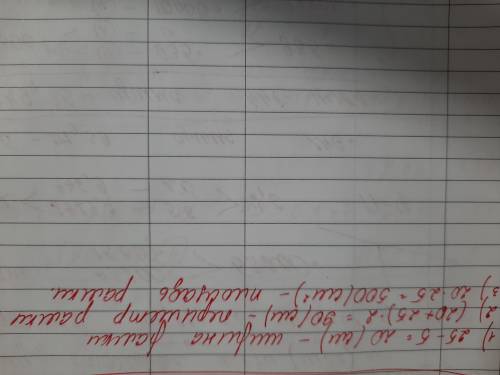 1) 25 - 5 = 20 (см) - ширина рамки
2) (20 + 25) · 2 = 90 (см) - периметр рамки
3) 20 · 25 = 500 (см²) - площадь рамки.